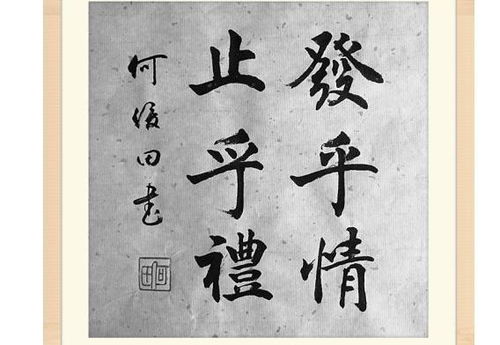 發乎情
止乎禮
何田書